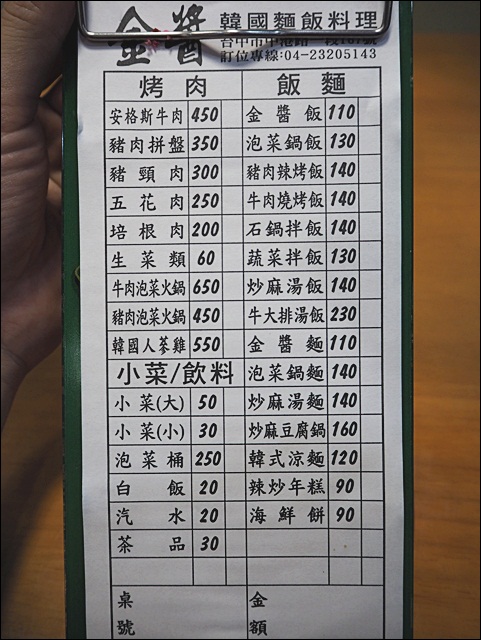 金醬 韓國麵飯料理
訂位專線:04-23205143
烤肉 飯麵
安格斯牛肉 450 金醬飯 110
豬肉拼盤 350 泡菜鍋飯 130
豬頸肉 300 豬肉辣烤飯 140
五花肉 250 牛肉燒烤飯 140
培根肉 200 石鍋拌飯 140
生菜類 60 蔬菜拌飯 130
牛肉泡菜火鍋 650 炒麻湯飯 140
豬肉泡菜火鍋 450 牛大排湯飯 230
韓國人蔘雞 550 金醬麵 110
小菜/飲料 泡菜鍋麵 140
小菜(大) 50 炒麻湯麵 140
小菜(小) 30 炒麻豆腐鍋 160
泡菜桶 250 韓式涼麵 120
白飯 20 辣炒年糕 90
汽水 20 海鮮餅 90
茶品 30
桌號 金額